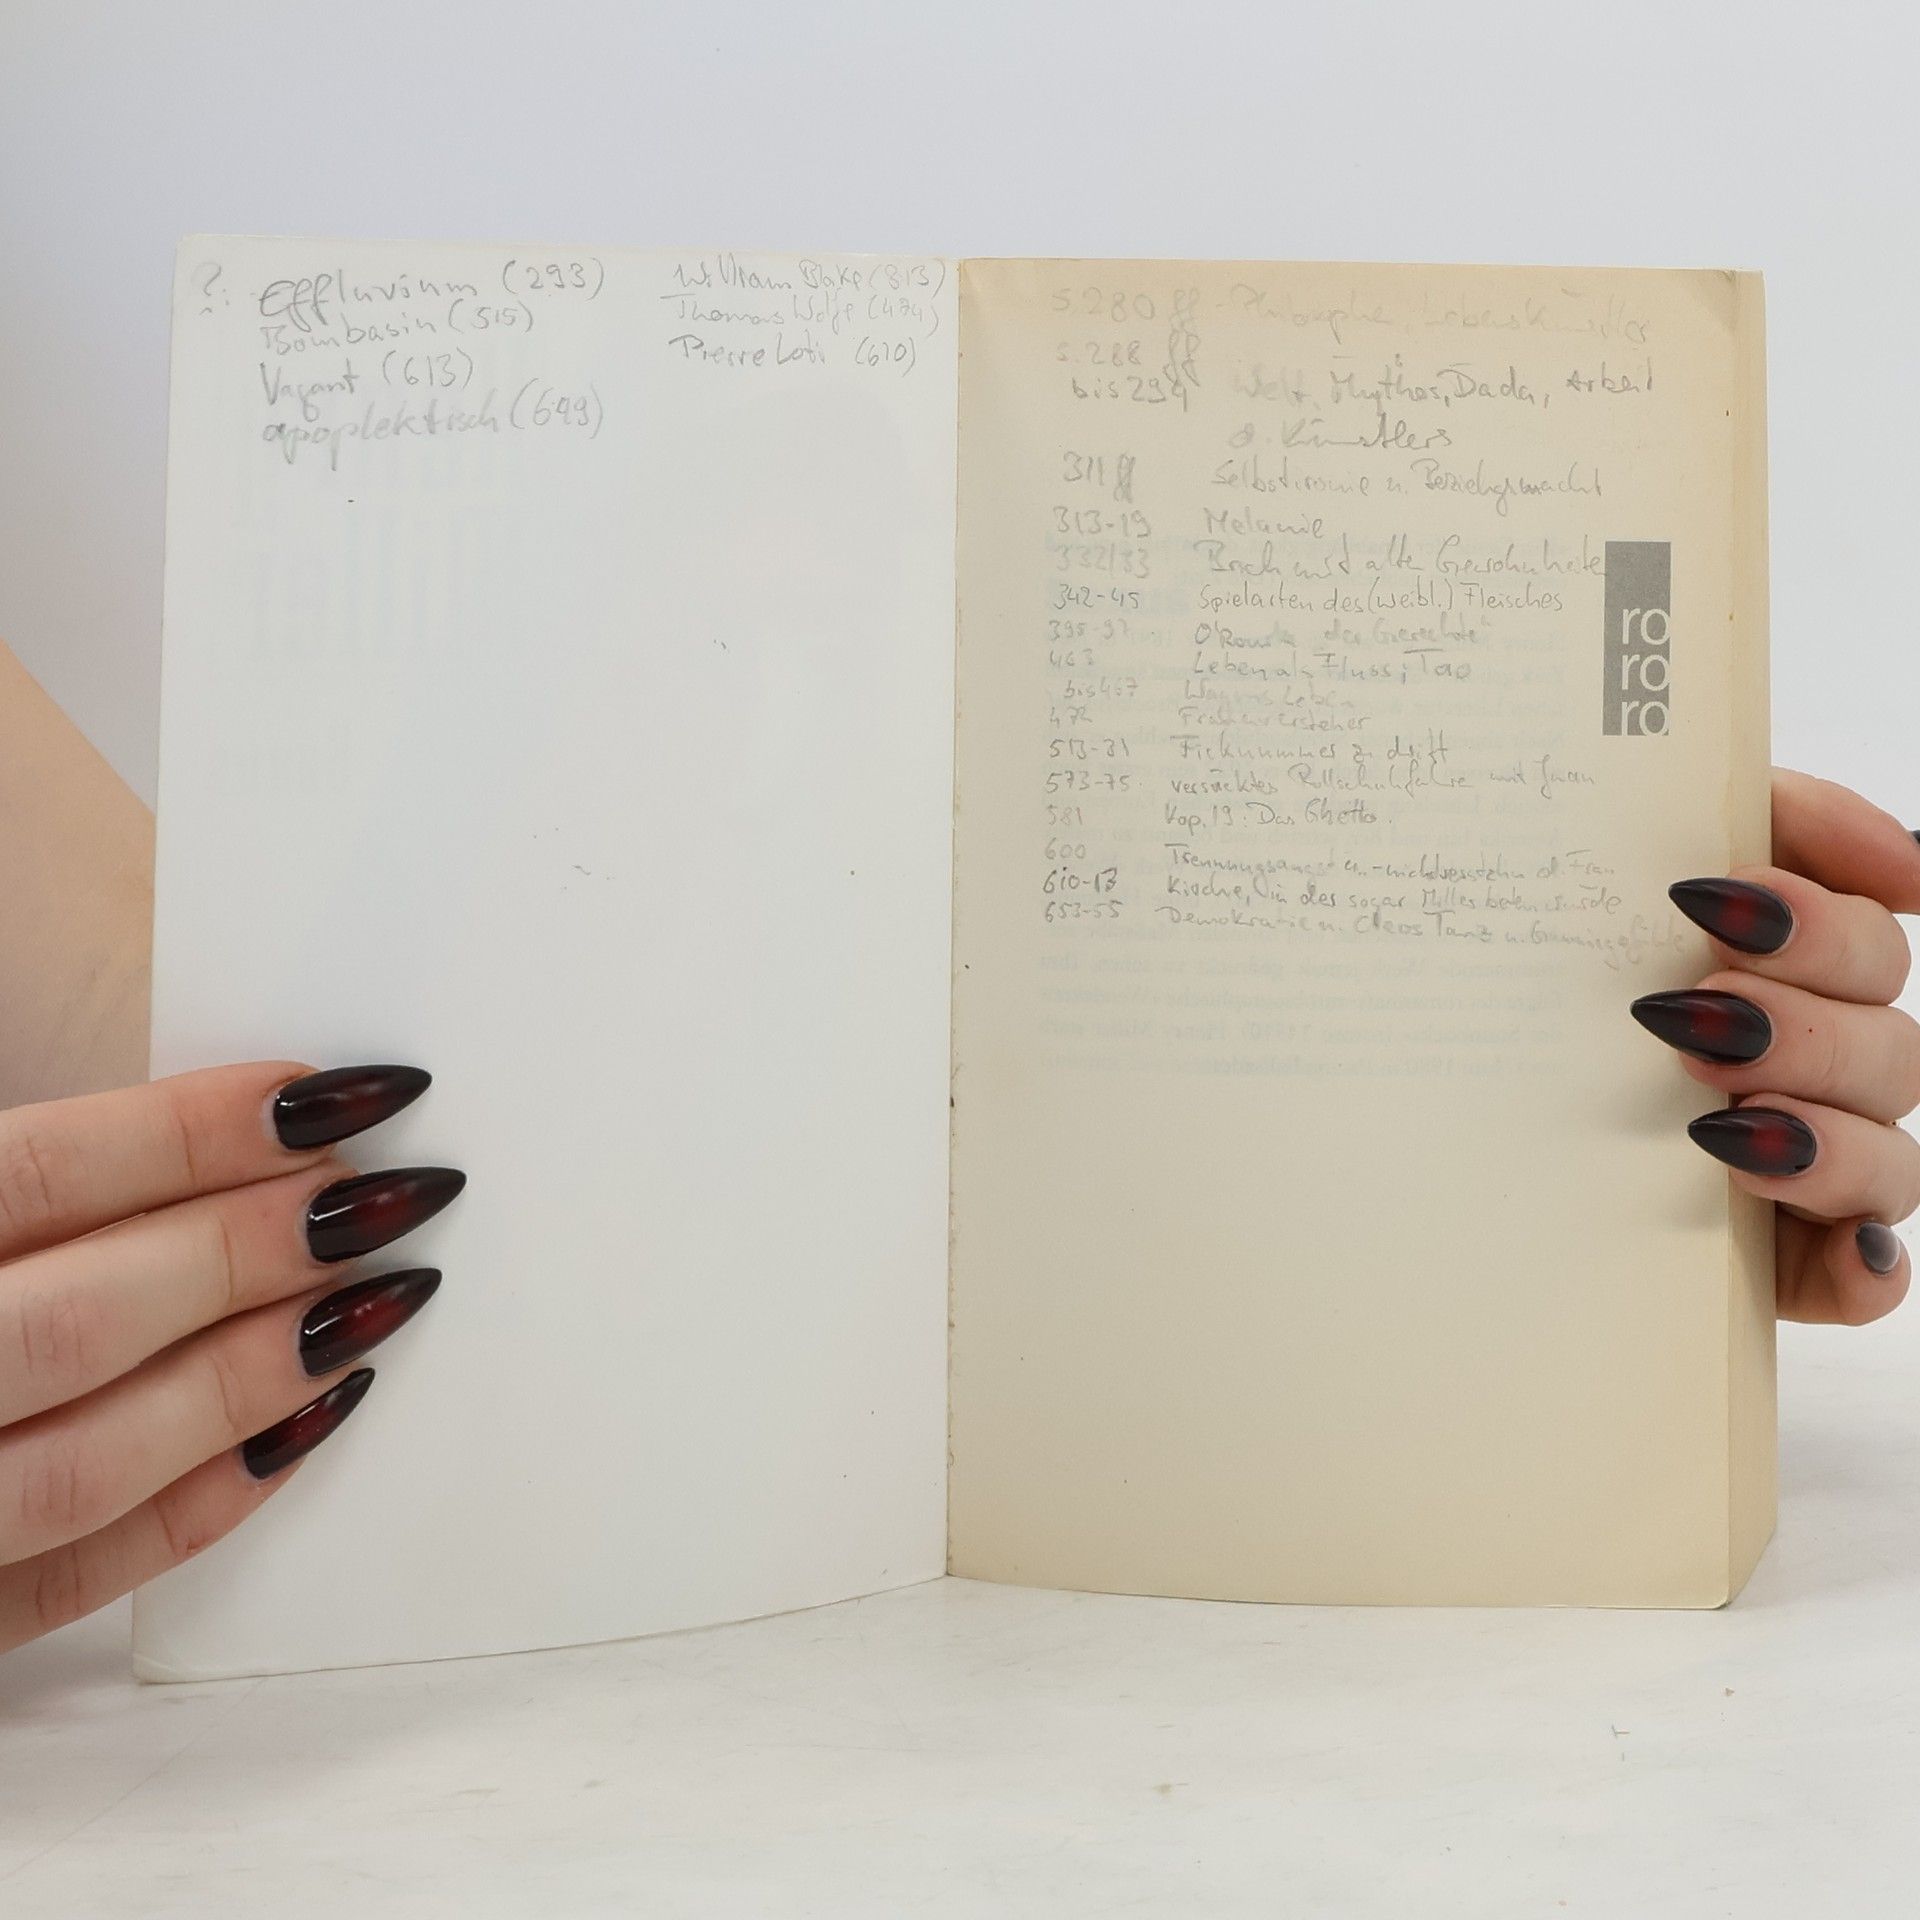 ?: Effluvium (293)
Bombasin (515)
Vagant (613)
apoplektisch (649)
William Blake (313)
Thomas Wolfe (474)
Pierre Loti (610)
S. 280 ff - Philosophie, Lebenskünstler
S. 288 ff
bis 294 Welt, Mythos, Dada, Arbeit
d. Künstlers
311 ff Selbstironie u. Beziehgsmacht
313-19 Melanie
332/33 Bruch mit alten Gewohnheiten
342-45 Spielarten des (weibl.) Fleisches
395-97 O'Rourke "der Gerechte"
463 Leben als Fluss; Tao
bis 467 Leben
472 Frauenversteher
513-31 Ficknummer zu dritt
573-75 verrücktes mit
581 Kap. 19: Das Ghetto.
600 Trennungsangst u. -nichtverstehn d. Frau
610-13 Kirche, in der sogar Miller beten würde
653-55 Demokratie u. Cleos Tanz u.
ro
ro
ro